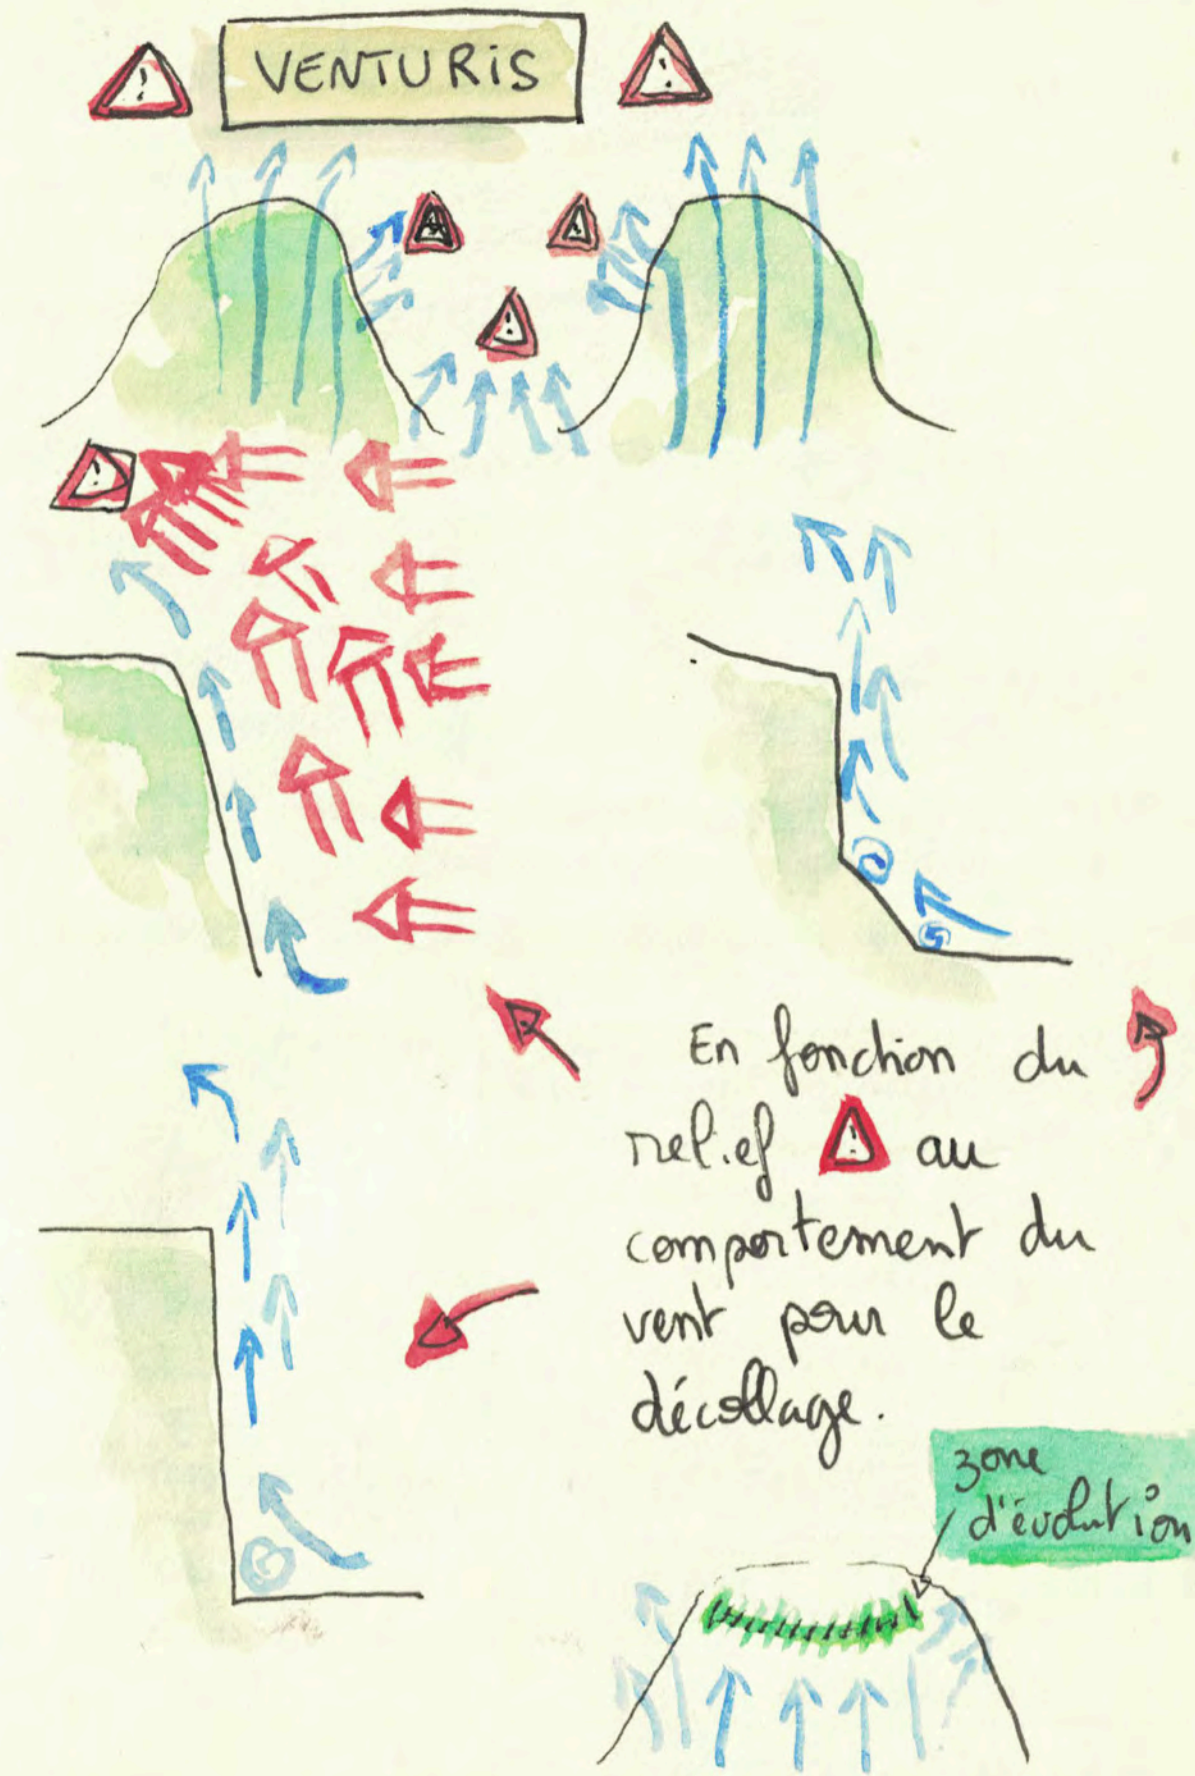 VENTURIS
En fonction du
relief au
comportement du
vent pour le
décollage.
zone
d'évolution